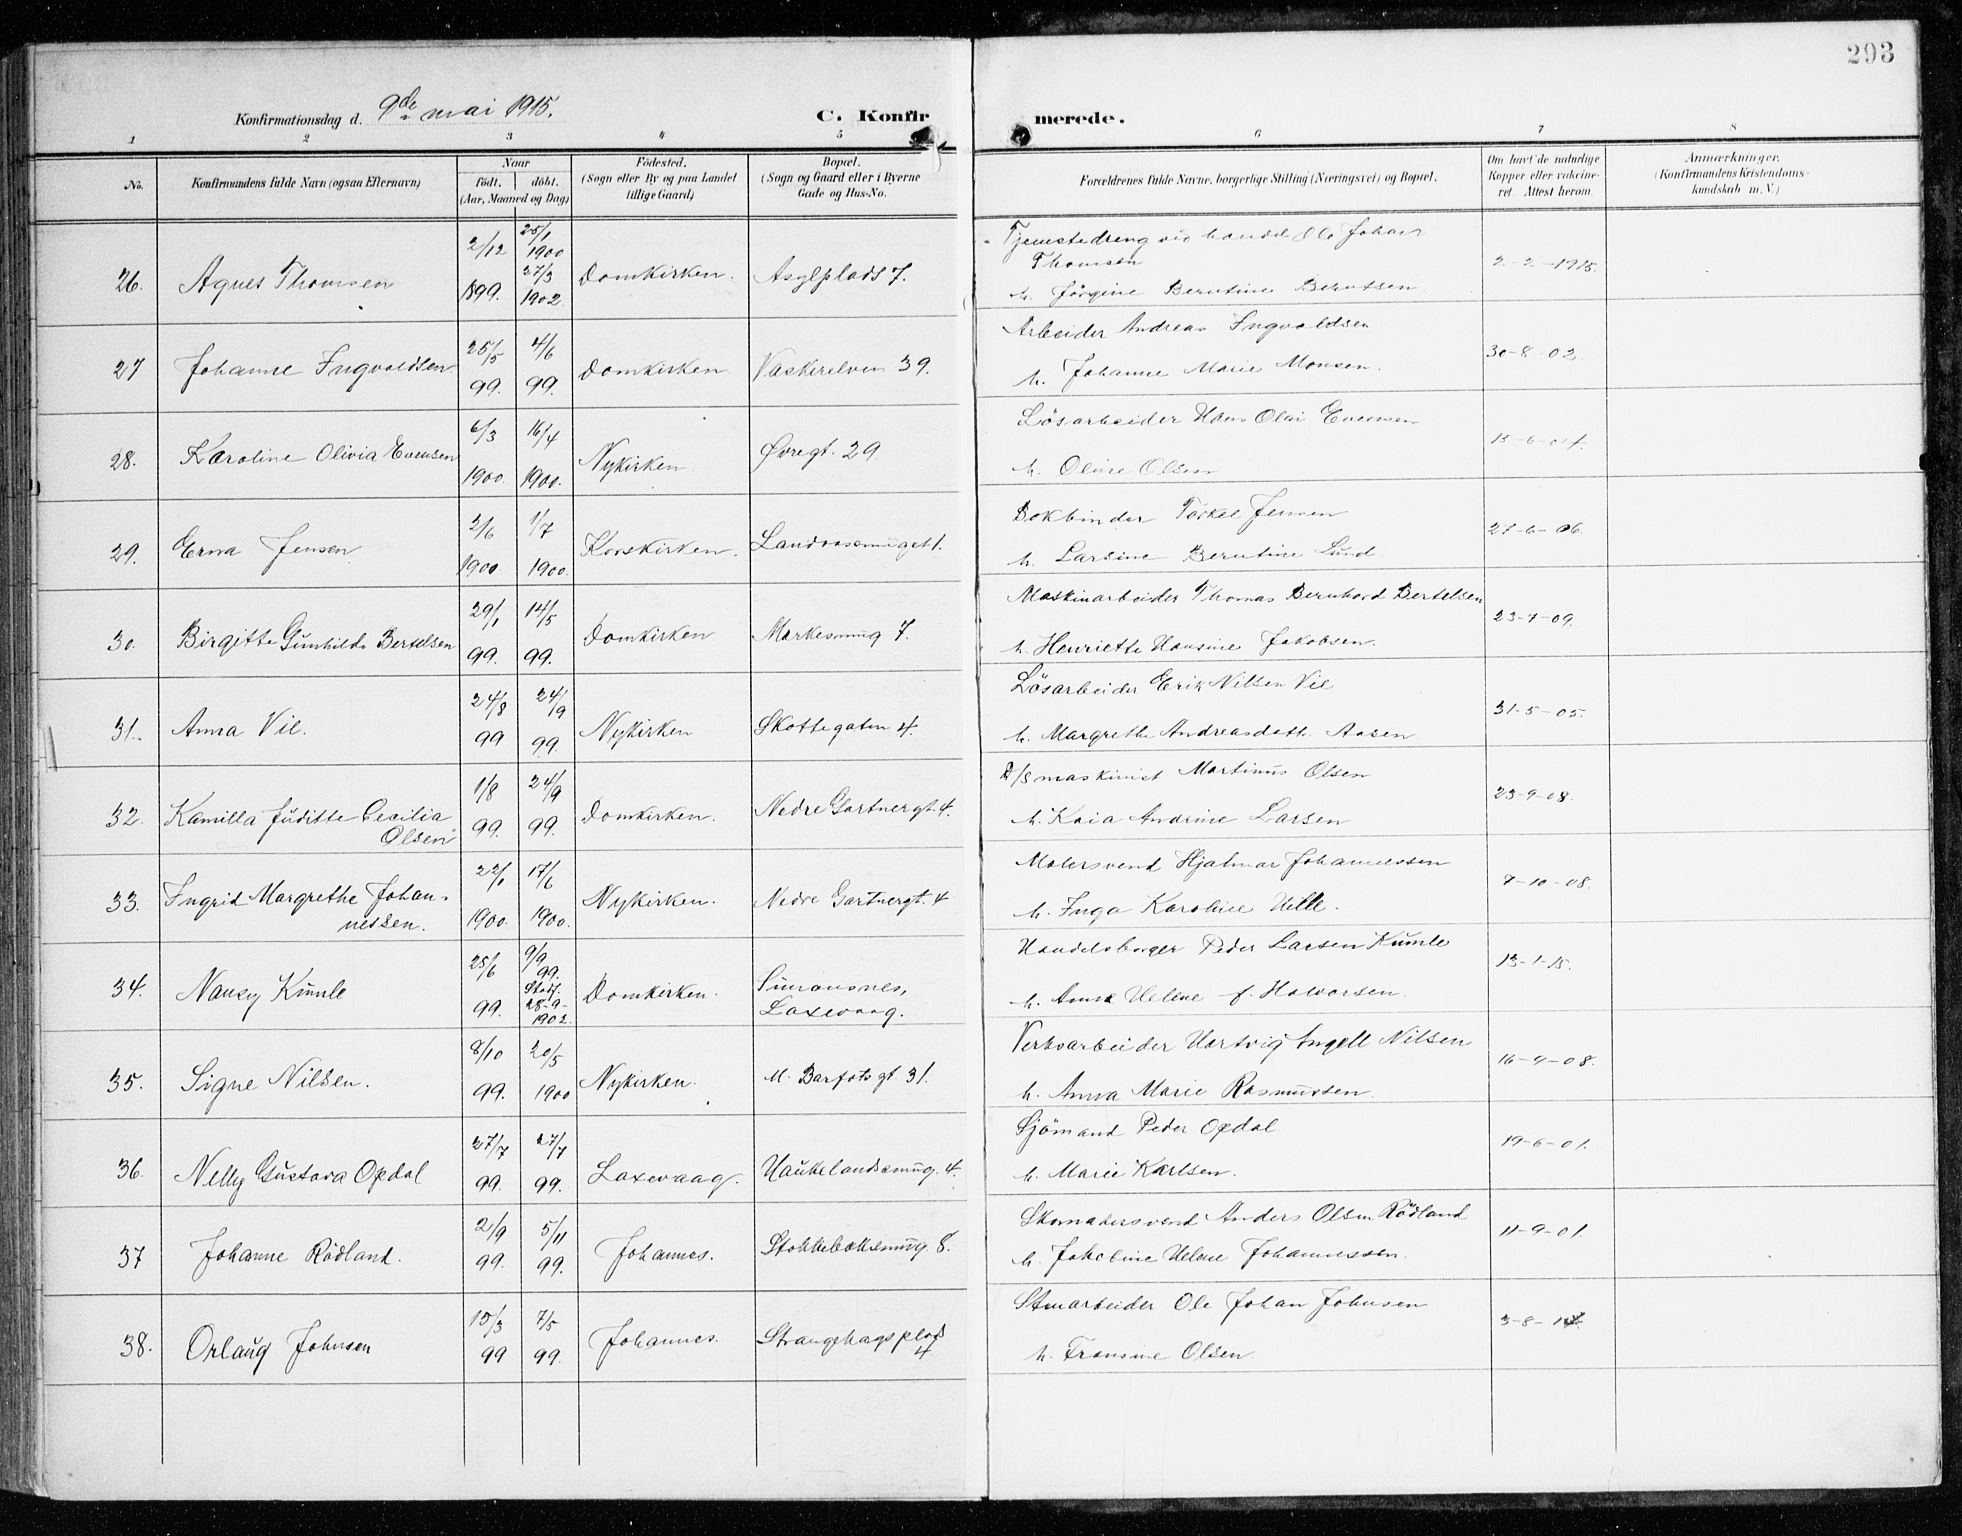 293
Konfirmationsdag d. 9de mai 1915.
C. Konfirmerede.
1 2 3 4 5 6 7 8
No.
Konfirmandens fulde Navn (ogsaa Efternavn)
Naar
födt. döbt.
(Aar, Maaned og Dag)
Födested.
(Sogn eller By og paa Landet
tillige Gaard)
Bopæl.
(Sogn og Gaard eller i Byerne
Gade og Hus-No.
Forældrenes fulde Navne, borgerlige Stilling (Næringsvei) og Bopæl.
Om havt de naturlige
Kopper eller vakcine-
ret Attest herom.
Anmærkninger.
(Konfirmandens Kristendoms-
kundskab m. V.)
26. Agnes Thomsen 2/12 1899. 25/1 1900 27/3 1902. Domkirken. Asylplads 7.
Tjenestedreng ved handel Ole Johan
Thomsen
h. Jörgine Berntine Berntsen.
2-2-1915.
27 Johanne Ingvaldsen 25/5 99. 4/6 99. Domkirken. Vaskerelven 39.
Arbeider Andreas Ingvaldsen
h. Johanne Marie Monsen.
30-8-02.
28. Karoline Olivia Evensen 6/3 1900. 16/4 1900. Nykirken. Øvregt. 29
Lösarbeider Hans Olai Evensen
h. Oline Olsen
15-6-04.
29. Erna Jensen 2/6 1900. 1/7 1900. Korskirken.
Bokbinder Torkel Jensen
h. Larsine Berntine Lund.
27-6-06.
30. Birgitte Gunhilda Bertelsen 29/1 99. 14/5 99. Domkirken Markesmug 7.
Maskinarbeider Thomas Bernhard Bertelsen
h. Henriette Hansine Jakobsen.
31. Anna Vil. 24/8 99 24/9 99. Nykirken Skottegaten 4.
Lösarbeider Erik Nilsen Vil
h. Margrethe Andreasdatt. Aasen
31-5-05.
32. Kamilla Juditte Cecilia
Olsen 1/8 99. 24/9 99. Domkirken. Nedre Gartnergt. 4.
D/S maskinist Martinus Olsen
h. Kaia Andrine Larsen
23-9-08.
33. Ingrid Margrethe Johan-
nessen. 22/1 1900. 17/6 1900. Nykirken. Nedre Gartnergt. 4
Malersvend Hjalmar Johannessen
h. Inga Karoline Helle.
7-10-08.
34. Nancy Kumle 25/6 99. 9/9 99. Stadf. 28-9-1902. Domkirken. Simonsnes,
Laxevaag.
Handelsborger Peder Larsen Kumle
h. Anna Helene f. Halvorsen.
13-1-15.
35. Signe Nilsen. 8/10 99. 20/5 1900 Nykirken. M. Barfots gt. 31.
Verksarbeider Hartvig Angell Nilsen
h. Anna Marie Rasmussen.
16-9-08.
36. Nelly Gustava Opdal 27/7 99. 27/7 99. Laxevaag. Haukelandsmug. 4.
Sjömand Peder Opdal.
h. Marie Karlsen.
19-6-01.
37 Johanne Rödland. 2/9 99. 5/11 99. Johannes. Stokkebæksmug 8.
Skomakersvend Anders Olsen Rödland
h. Jakobine Helene Johannessen.
11-9-01.
38. Orlaug Johnsen 15/3 99 7/5 99. Johannes. Strangehagsplad
4
Stenarbeider Ole Johan Johnsen
h. Fransine Olsen.